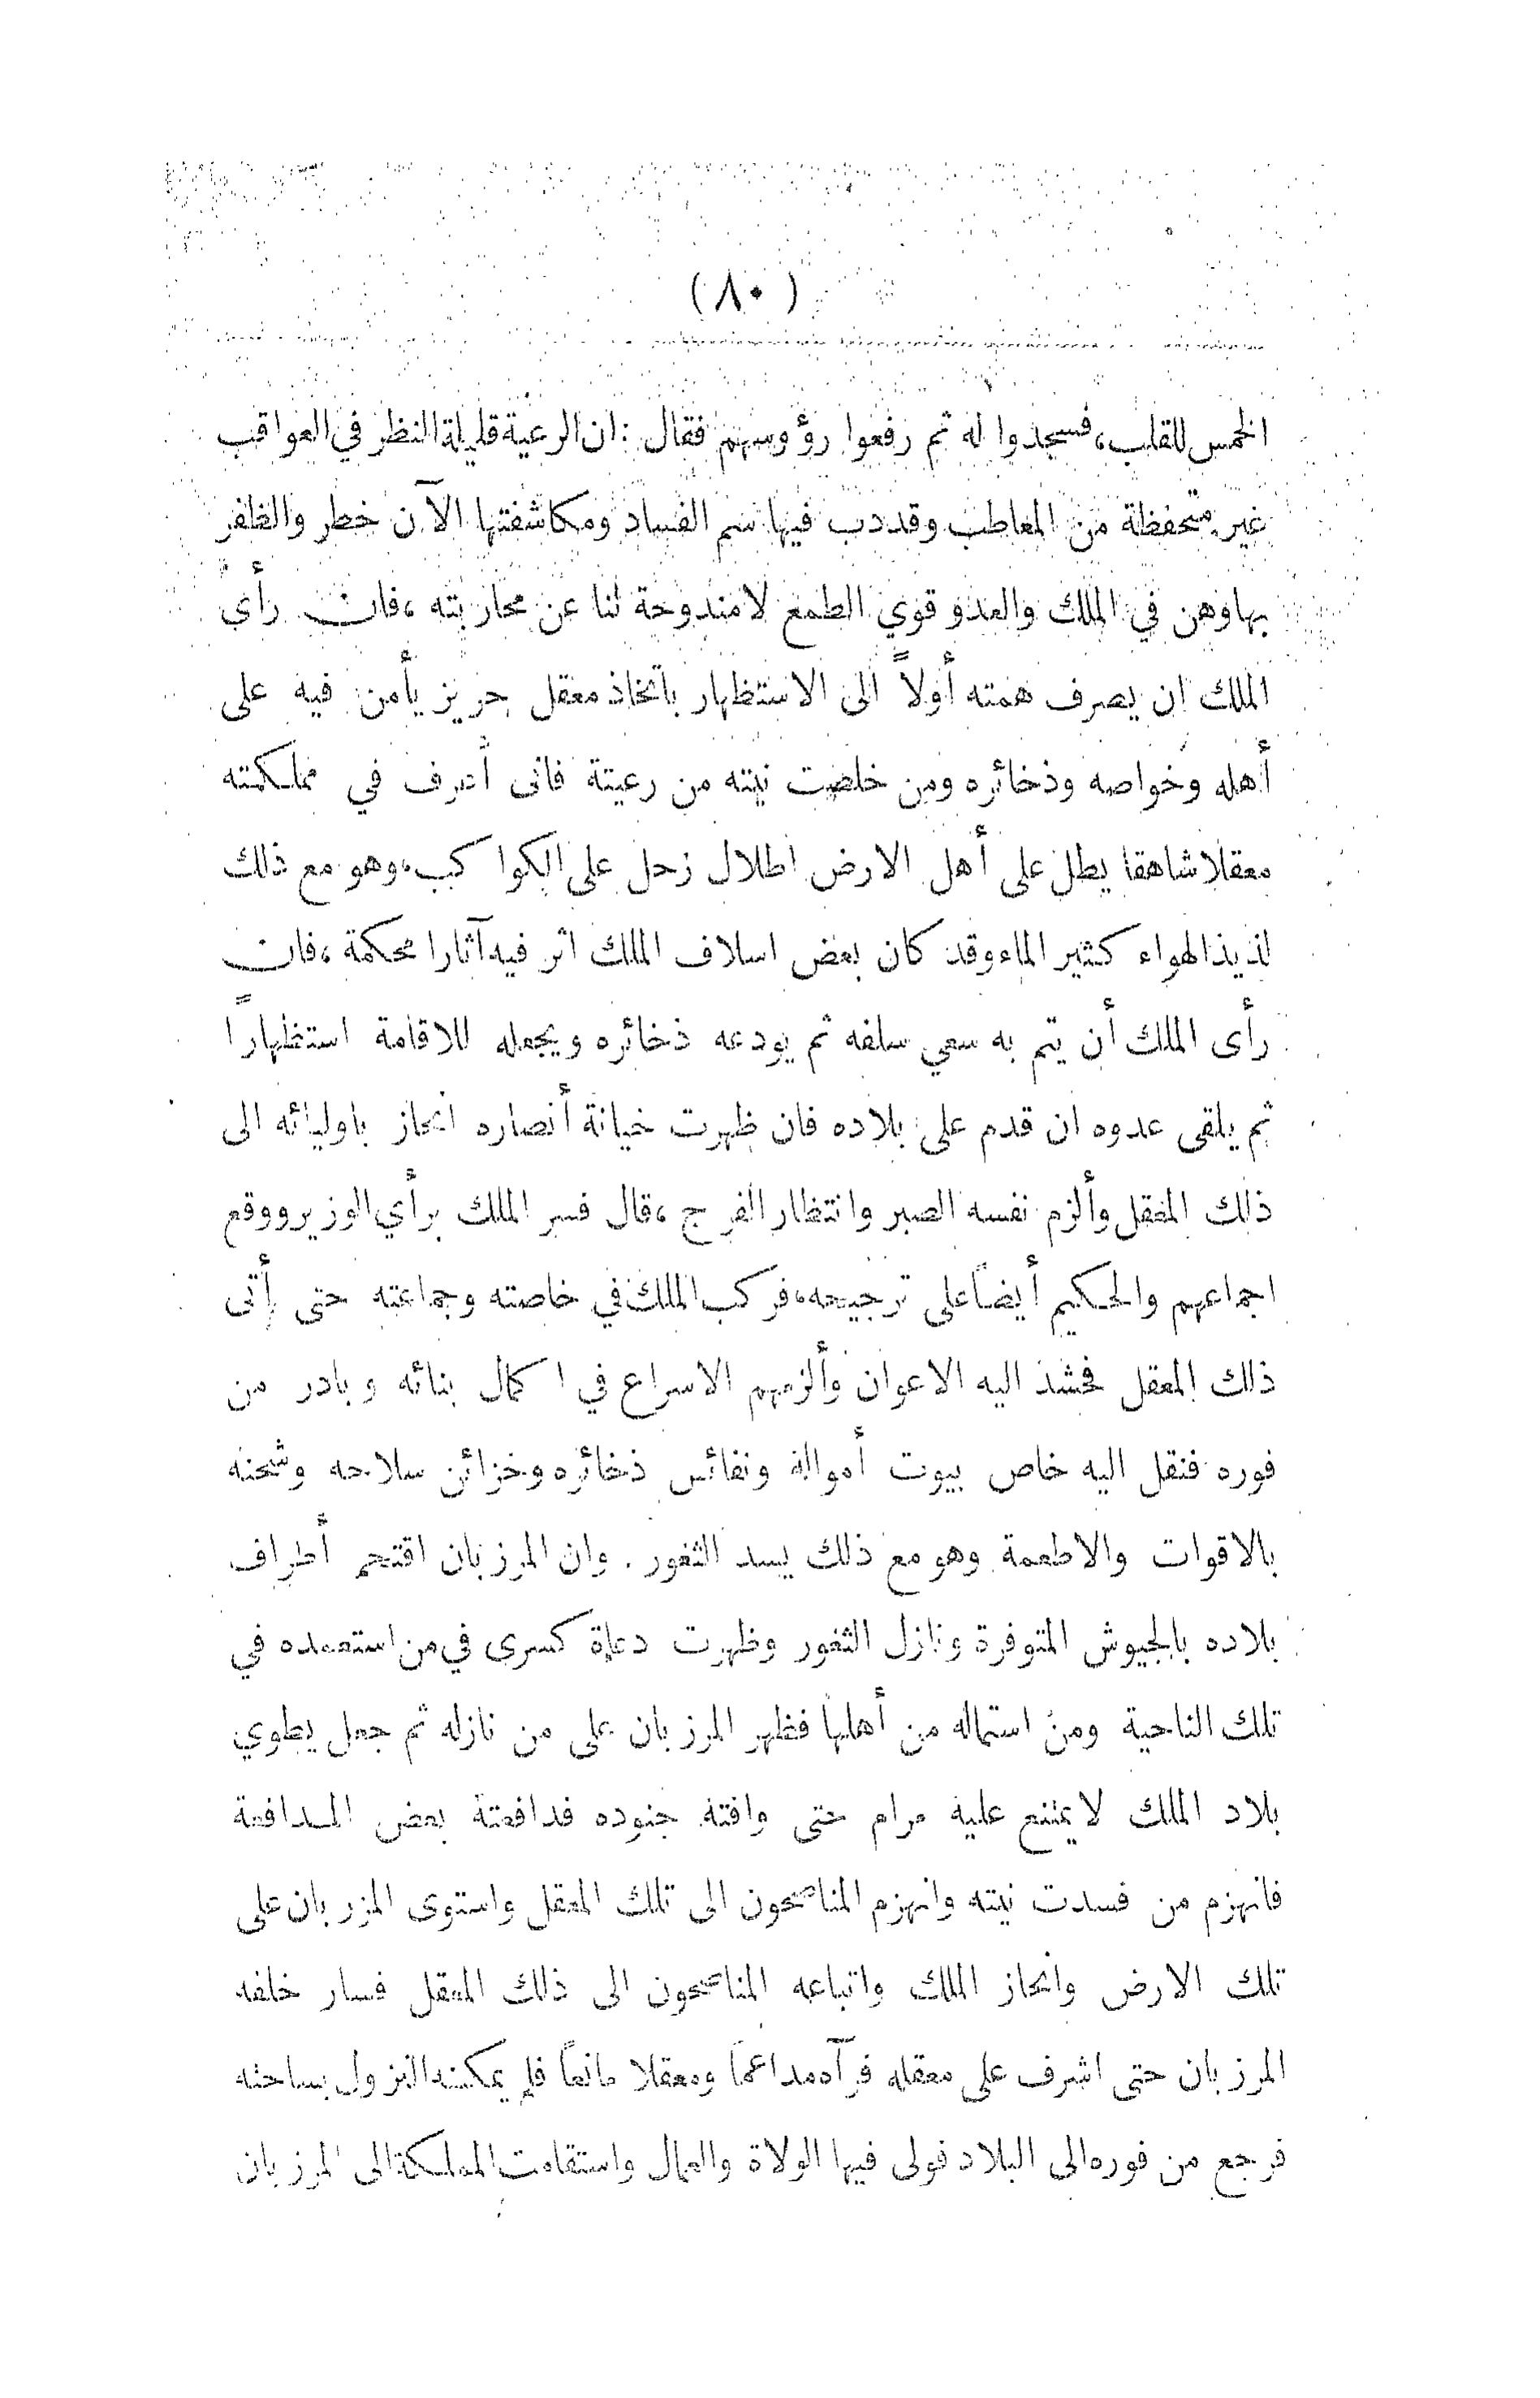 (٨٠)
الخمس للقلب، فسجدوا له ثم رفعوا رؤوسهم فقال : ان الرعية قليلة النظر في العواقب
غير متحفظة من المعاطب وقد دب فيها سم الفساد ومكاشفتها الآن خطر والظفر
بها وهن في الملك والعدو قوي الطمع لا مندوحة لنا عن محاربته ، فان رأى
الملك ان يصرف همته أولاً الى الاستظهار باتخاذ معقل حريز يأمن فيه على
أهله وخواصه وذخائره ومن خلصت نيته من رعيتة فانى أعرف في مملكته
معقلا شاهقا يطل على أهل الارض اطلال زحل على الكواكب، وهو مع ذلك
لذيذ الهواء كثير الماء وقد كان بعض اسلاف الملك اثر فيه آثارا محكمة ، فان
رأى الملك أن يتم به سعي سلفه ثم يودعه ذخائره ويجعله للاقامة استظهاراً
ثم يلقى عدوه ان قدم على بلاده فان ظهرت خيانة أنصاره انحاز باوليائه الى
ذلك المعقل وألزم نفسه الصبر وانتظار الفرج ، قال فسر الملك برأي الوزير ووقع
اجماعهم والحكيم أيضاً على ترجيحه، فركب الملك في خاصته وجماعته حتى أتى
ذلك المعقل فحشد اليه الاعوان وألزمهم الاسراع في اكمال بنائه وبادر من
فوره فنقل اليه خاص بيوت أمواله ونفائس ذخائره وخزائن سلاحه وشحنه
بالاقوات والاطعمة وهو مع ذلك يسد الثغور . وان المرزبان اقتحم أطراف
بلاده بالجيوش المتوفرة ونازل الثغور وظهرت دعاة كسرى في من استعمده في
تلك الناحية ومن استماله من أهلها فظهر المرزبان على من نازله ثم جعل يطوي
بلاد الملك لا يمتنع عليه مرام حتى وافته جنوده فدافعتة بعض المدافعة
فانهزم من فسدت نيته وانهزم المناصحون الى تلك المعقل واستوى المزربان على
تلك الارض وانحاز الملك واتباعه المناصحون الى ذلك المعقل فسار خلفه
المرزبان حتى اشرف على معقله فرآه مداعما ومعقلا مانعاً فلم يمكنه النزول بساحته
فرجع من فوره الى البلاد فولى فيها الولاة والعمال واستقامت المملكة الى المرزبان